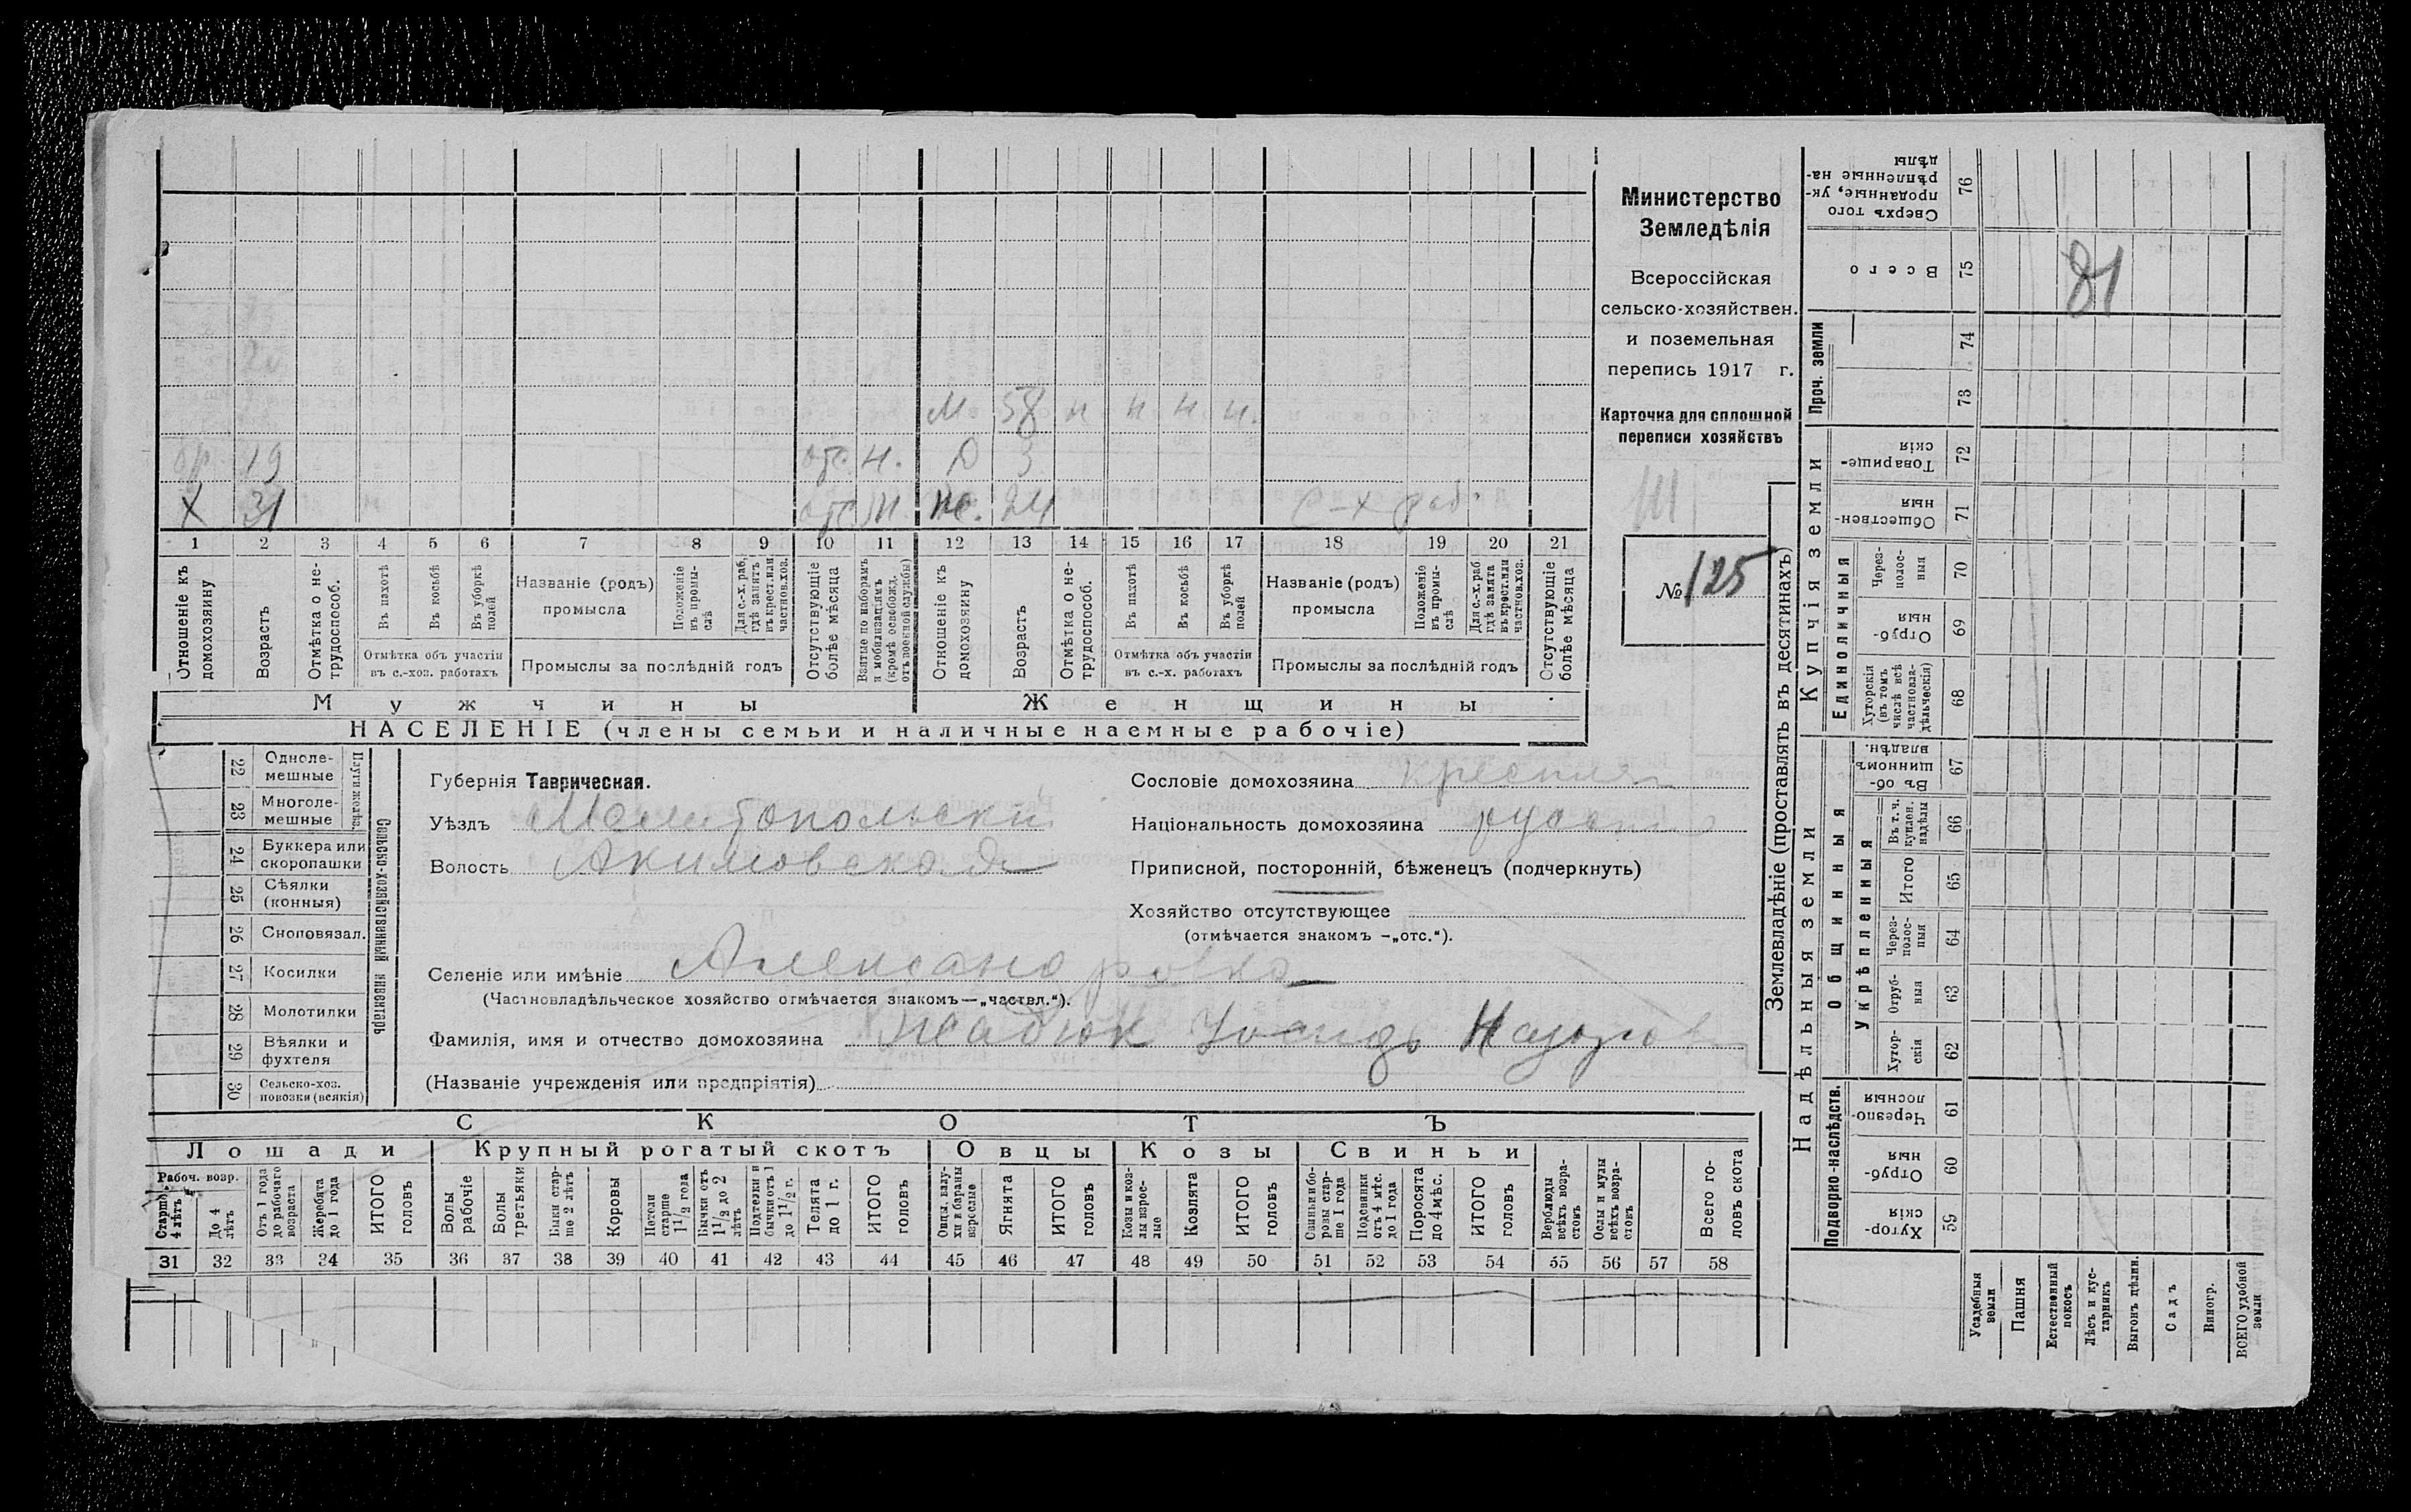 М 58 н н н н.
бр. 19 отс. н. д 3
х 31 отс М. же. 24 с-х раб.
1 2 3 4 5 6 7 8 9 10 11 12 13 14 15 16 17 18 19 20 21
Отношеніе къ домохозяину
Возрастъ
Отмѣтка о не-трудоспособ.
Въ пахотѣ
Въ косьбѣ
Въ уборкѣ полей
Отмѣтка объ участіи
въ с.-хоз. работахъ
Названіе (родъ)
промысла
Положеніе въ промы-слѣ
Для с.-х. раб. гдѣ занятъ въ крест. или частнов. хоз.
Промыслы за послѣдній годъ
Отсутствующіе болѣе мѣсяца
Взятые по наборамъ и мобилизаціямъ (кромѣ освобожд. отъ военной службы)
Отношеніе къ домохозяину
Возрастъ
Отмѣтка о не-трудоспособ.
Въ пахотѣ
Въ косьбѣ
Въ уборкѣ полей
Отмѣтка объ участіи
въ с.-х. работахъ
Названіе (родъ)
промысла
Положеніе въ промы-слѣ
Для с.-х. раб. гдѣ занята въ крест. или частнов. хоз.
Промыслы за послѣдній годъ
Отсутствующіе болѣе мѣсяца
Мужчины Женщины
НАСЕЛЕНІЕ (члены семьи и наличные наемные рабочіе)
Министерство
Земледѣлія
Всероссійская
сельско-хозяйствен.
и поземельная
перепись 1917 г.
Карточка для сплошной
переписи хозяйствъ
III
№ 125
22 Одноле-мешные
23 Многоле-мешные
Плуги желѣз.
24 Буккера или скоропашки
25 Сѣялки (конныя)
26 Сноповязал.
27 Косилки
28 Молотилки
29 Вѣялки и фухтеля
30 Сельско-хоз. повозки (всякія)
Сельско-хозяйственный инвентарь
Губернія Таврическая.
Уѣздъ Мелитопольскій
Волость Акимовская
Селеніе или имѣніе Александровка
(Частновладѣльческое хозяйство отмѣчается знакомъ—„частвл.“).
Фамилія, имя и отчество домохозяина
(Названіе учрежденія или предпріятія)
Сословіе домохозяина крестьян
Національность домохозяина русскій
Приписной, посторонній, бѣженецъ (подчеркнуть)
Хозяйство отсутствующее
(отмѣчается знакомъ —„отс.“).
СКОТЪ
Лошади Крупный рогатый скотъ Овцы Козы Свиньи
Рабоч. возр.
Старше 4 лѣтъ
До 4 лѣтъ
Отъ 1 года до рабочаго возраста
Жеребята до 1 года
ИТОГО головъ
Волы рабочіе
Волы третьяки
Быки стар-ше 2 лѣтъ
Коровы
Нетели старше 1 1/2 года
Бычки отъ 1 1/2 до 2 лѣтъ
Подтелки и бычки отъ 1 до 1 1/2 г.
Телята до 1 г.
ИТОГО головъ
Овцы, валу-хи и бараны взрослые
Ягнята
ИТОГО головъ
Козы и коз-лы взрос-лые
Козлята
ИТОГО головъ
Свиньи и бо-ровы стар-ше 1 года
Подсвинки отъ 4 мѣс. до 1 года
Поросята до 4 мѣс.
ИТОГО головъ
Верблюды всѣхъ возра-стовъ
Ослы и мулы всѣхъ возра-стовъ
Всего го-ловъ скота
31 32 33 34 35 36 37 38 39 40 41 42 43 44 45 46 47 48 49 50 51 52 53 54 55 56 57 58
Землевладѣніе (проставлять въ десятинахъ)
Надѣльныя земли
Купчія земли
Проч. земли
Подворно-наслѣдств.
Общинныя
Укрѣпленныя
Единоличныя
Хутор-скія 59
Отруб-ныя 60
Черезпо-лосныя 61
Хутор-скія 62
Отруб-ныя 63
Через-полос-ныя 64
Итого 65
Въ т. ч. куплен. надѣлы 66
Въ об-щинномъ владѣн. 67
Хуторскія (въ томъ числѣ всѣ частновла-дѣльческія) 68
Отруб-ныя 69
Через-полос-ныя 70
Обществен-ныя 71
Товарище-скія 72
73
74
Всего 75
Сверхъ того проданные, ук-рѣпленные на-дѣлы 76
81
Усадебныя земли
Пашня
Естественный покосъ
Лѣсъ и кус-тарникъ
Выгонъ цѣлин.
Садъ
Виногр.
ВСЕГО удобной земли